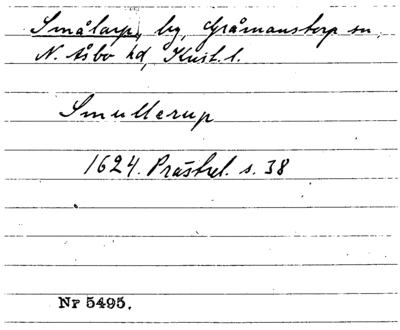 Smålarp, by, Gråmanstorp sn,
N. Åsbo hd, Krist. l.
Smullerup
1624. Prästrel. s. 38
Nr 5495.